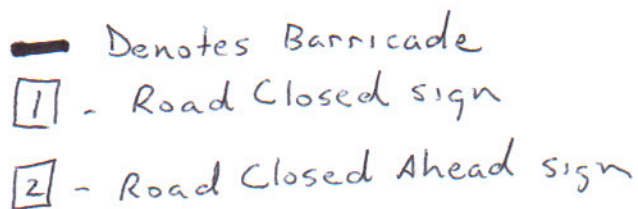 Denotes Barricade
1 - Road Closed sign
2 - Road Closed Ahead sign